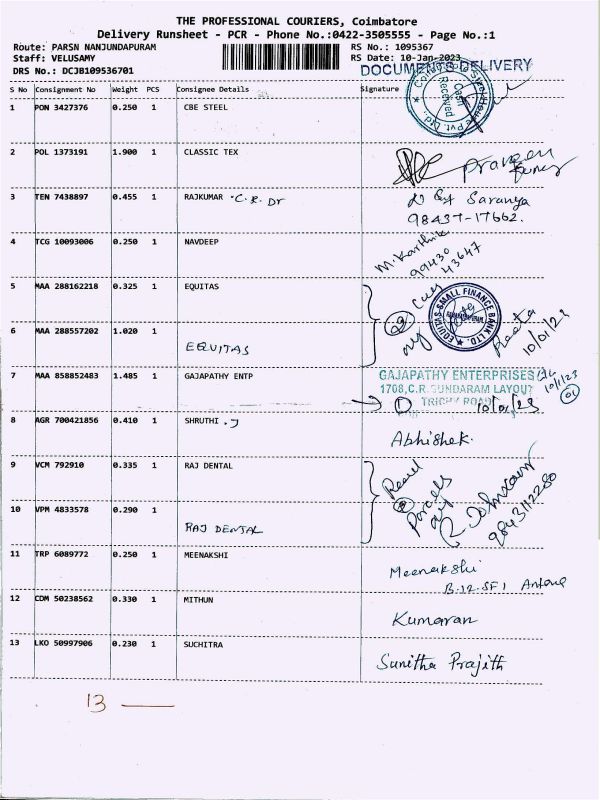 THE PROFESSIONAL COURIERS, Coimbatore
Delivery Runsheet - PCR - Phone No.:0422-3505555 - Page No.:1
Route: PARSN NANJUNDAPURAM RS No.: 1095367
Staff: VELUSAMY RS Date: 10-Jan-2023
DRS No.: DCJB109536701 DOCUMENTS DELIVERY
S No Consignment No Weight PCS Consignee Details Signature
1 PON 3427376 0.250 1 CBE STEEL Cash Received
2 POL 1373191 1.900 1 CLASSIC TEX Praveen
3 TEN 7438897 0.455 1 RAJKUMAR C.R. Dr Saranya
98437-17662.
4 TCG 10093006 0.250 1 NAVDEEP M. Karthik
99430
43647
5 MAA 288162218 0.325 1 EQUITAS EQUITAS SMALL FINANCE BANK LTD.
6 MAA 288557202 1.020 1 Geeta
EQUITAS 10/01/23
7 MAA 858852483 1.485 1 GAJAPATHY ENTP GAJAPATHY ENTERPRISES
1708,C.R.SUNDARAM LAYOUT 10/1/23
TRICHY ROAD
1 10/01/23
8 AGR 700421856 0.410 1 SHRUTHI . J
Abhishek.
9 VCM 792910 0.335 1 RAJ DENTAL
10 VPM 4833578 0.290 1 Parcels
RAJ DENTAL 9843112280
11 TRP 6089772 0.250 1 MEENAKSHI Meenakshi
B-12-SF1
12 CDM 50238562 0.330 1 MITHUN
Kumaran
13 LKO 50997906 0.230 1 SUCHITRA
Sunitha Prajith
13